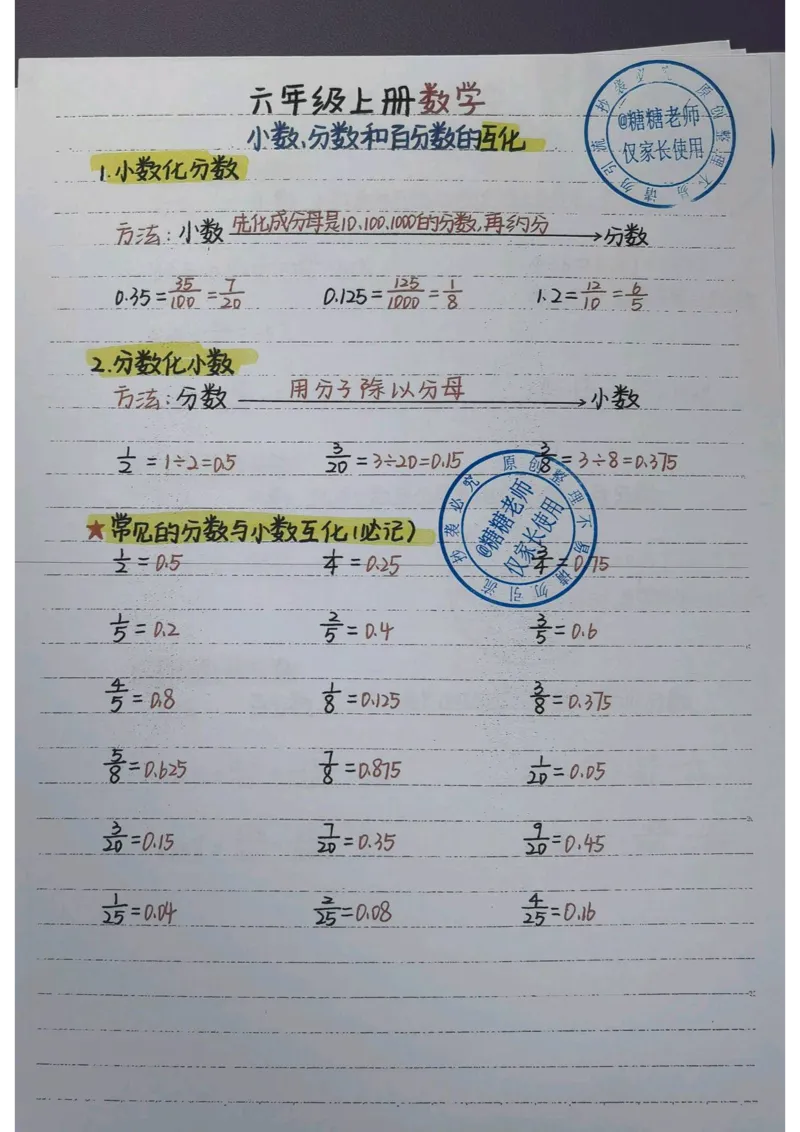 六年级上册数学
小数、分数和百分数的互化
@糖糖老师
仅家长使用
原创整理不易请勿引流抄袭必究
1.小数化分数
方法：小数 先化成分母是10、100、1000的分数，再约分 → 分数
0.35=35/100=7/20 0.125=125/1000=1/8 1.2=12/10=6/5
2.分数化小数
方法：分数 用分子除以分母 → 小数
1/2=1÷2=0.5 3/20=3÷20=0.15 3/8=3÷8=0.375
@糖糖老师
仅家长使用
原创整理不易请勿引流抄袭必究
★常见的分数与小数互化(必记)
1/2=0.5 1/4=0.25 3/4=0.75
1/5=0.2 2/5=0.4 3/5=0.6
4/5=0.8 1/8=0.125 3/8=0.375
5/8=0.625 7/8=0.875 1/20=0.05
3/20=0.15 7/20=0.35 9/20=0.45
1/25=0.04 2/25=0.08 4/25=0.16